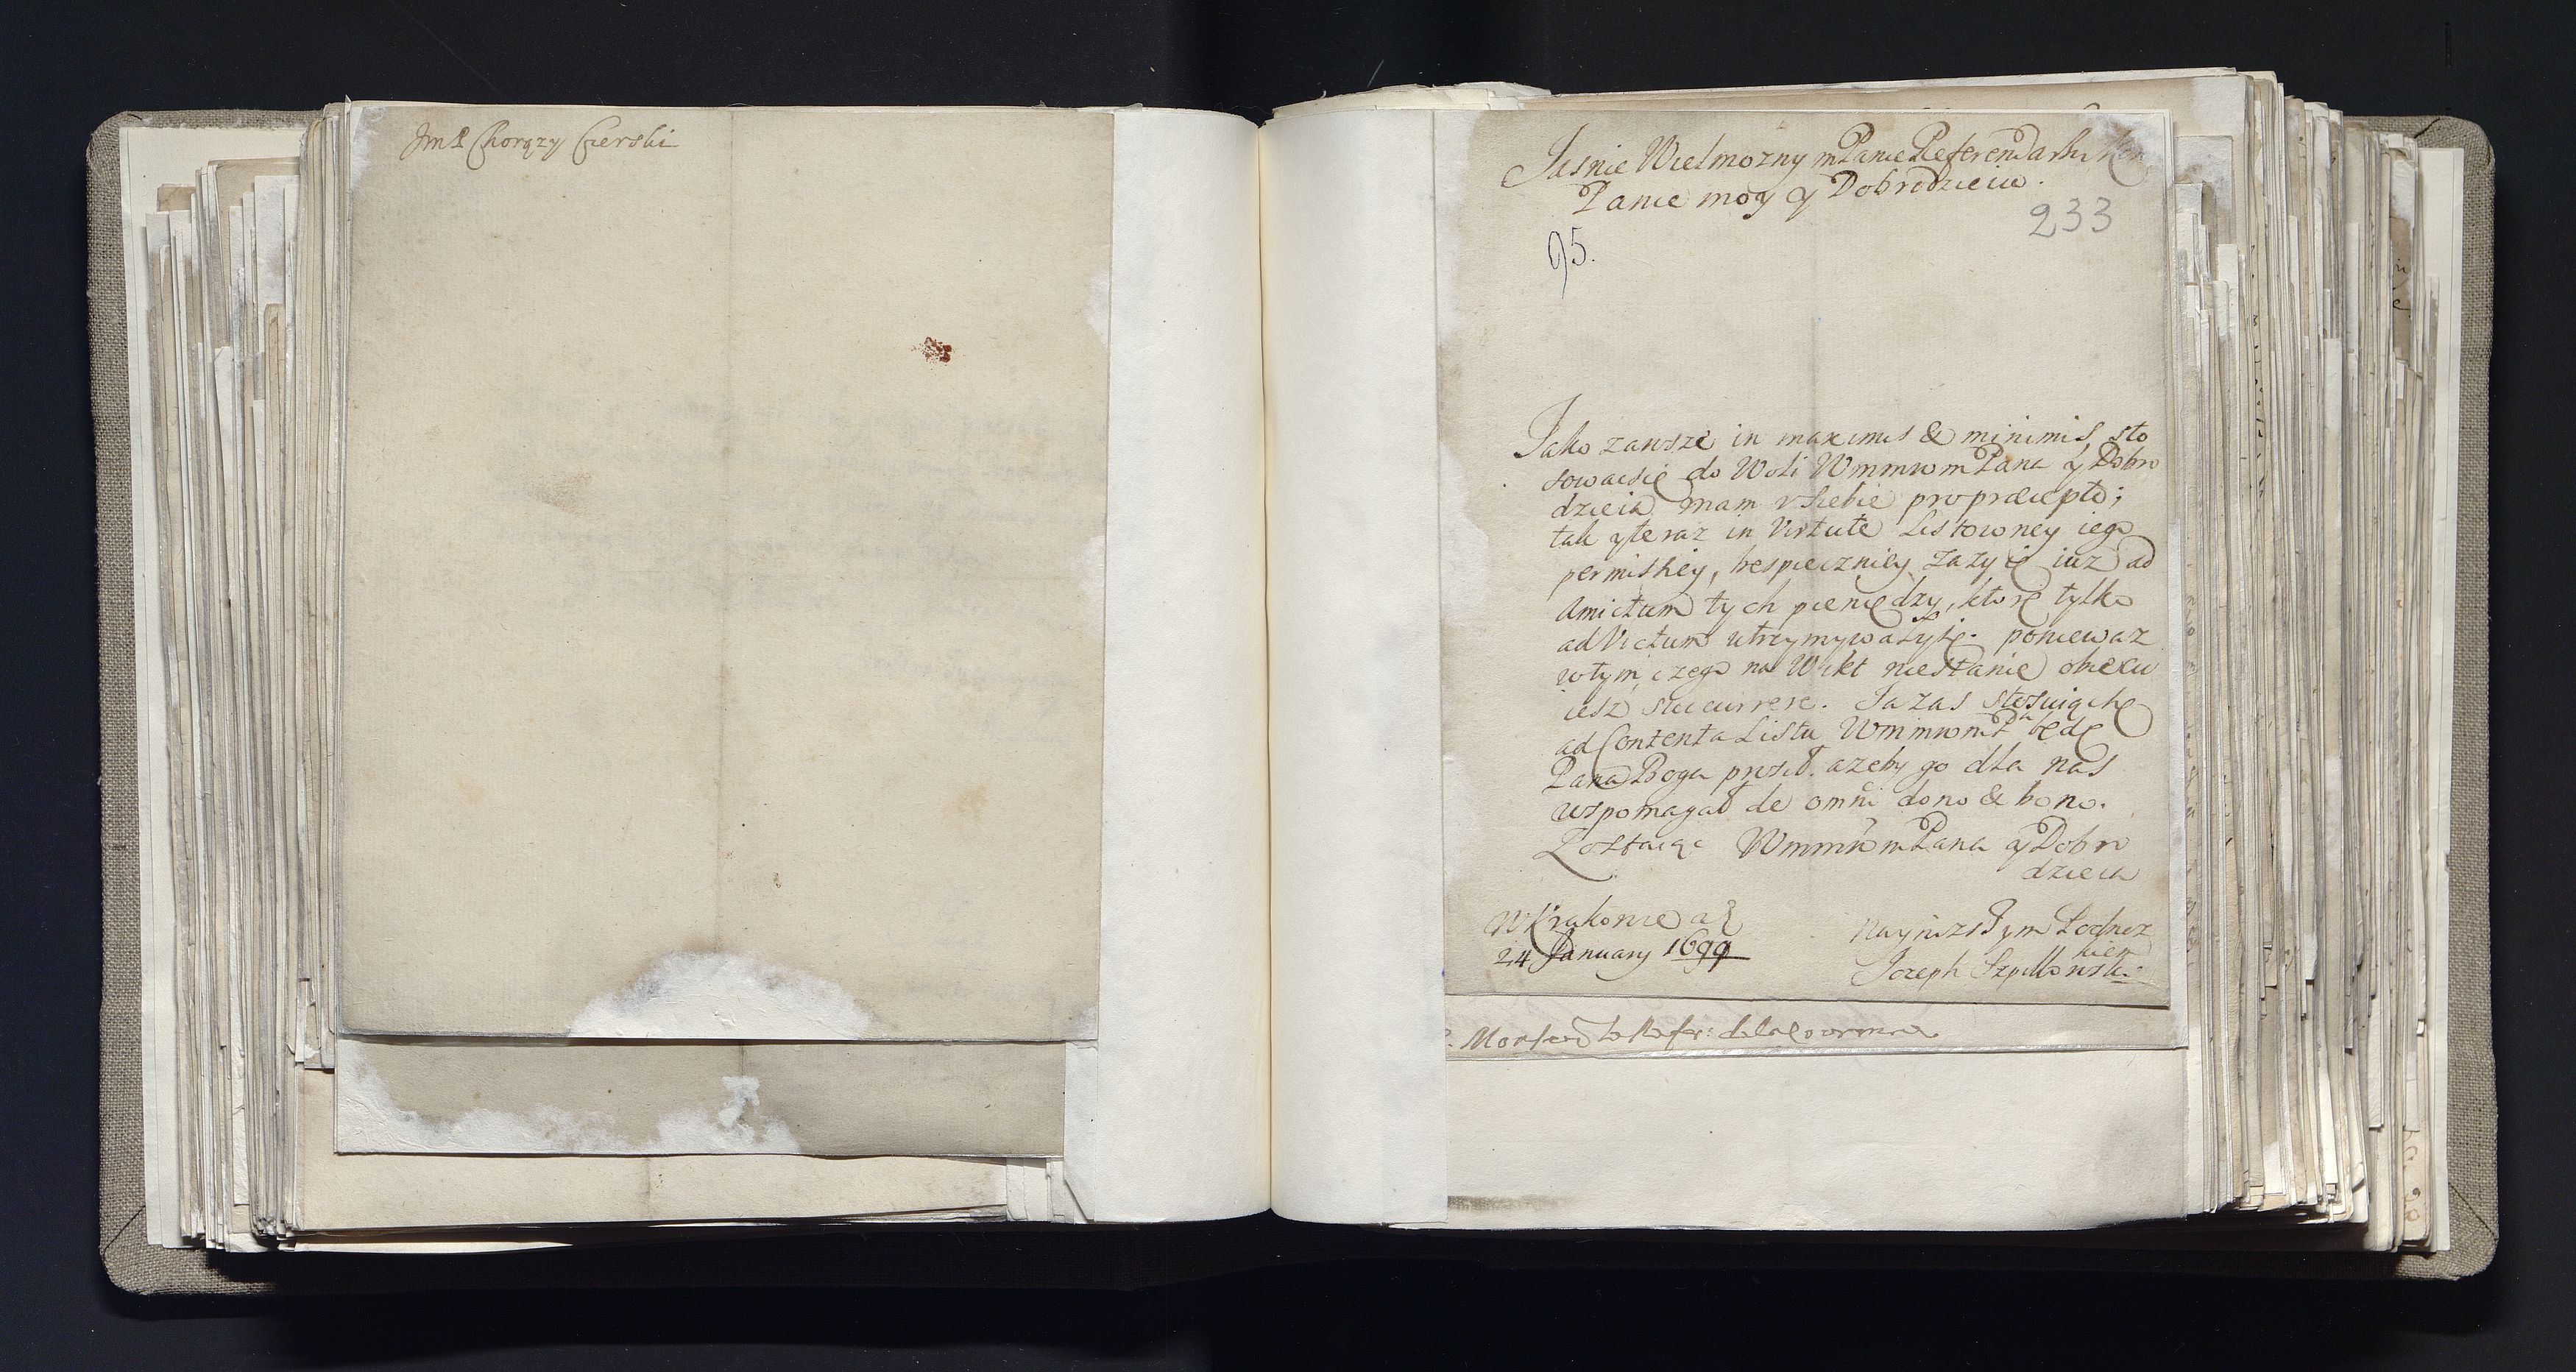 JmP Chorązy Czerski
Jasnie Wielmozny mPanie Referendarzu Kor
Panie moy y Dobrodzieiu.
233
95.
Jako zawsze in maximis & minimis sto
sowacsię do Woli WmmwmPana y Dobro
dzieia mam v siebie pro præcepto;
tak yteraz in Virtute Listowney iego
permissiey, bespieczniey zazyię iuz ad
Amictum tych pieniędzy, ktore tylko
ad Victum utrzymywałysię. poniewaz
wtym czego na Wikt niestanie obiecu
iesz succurrere. Ja zas stosuiącsię
ad Contenta Listu WmmwmPa będę
Pana Boga prosił. azeby go dla nas
wspomagał de omni dono & bono.
Zostaiąc WmmwmPana y Dobro
dzieia
W Krakowie d
24 January 1699
Nayniszszym Podnoz
kiem
Jozeph Szpilkowski